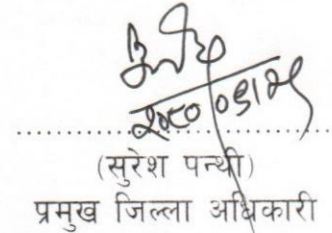 २०८०।०३।२५
....................................
(सुरेश पन्थी)
प्रमुख जिल्ला अधिकारी